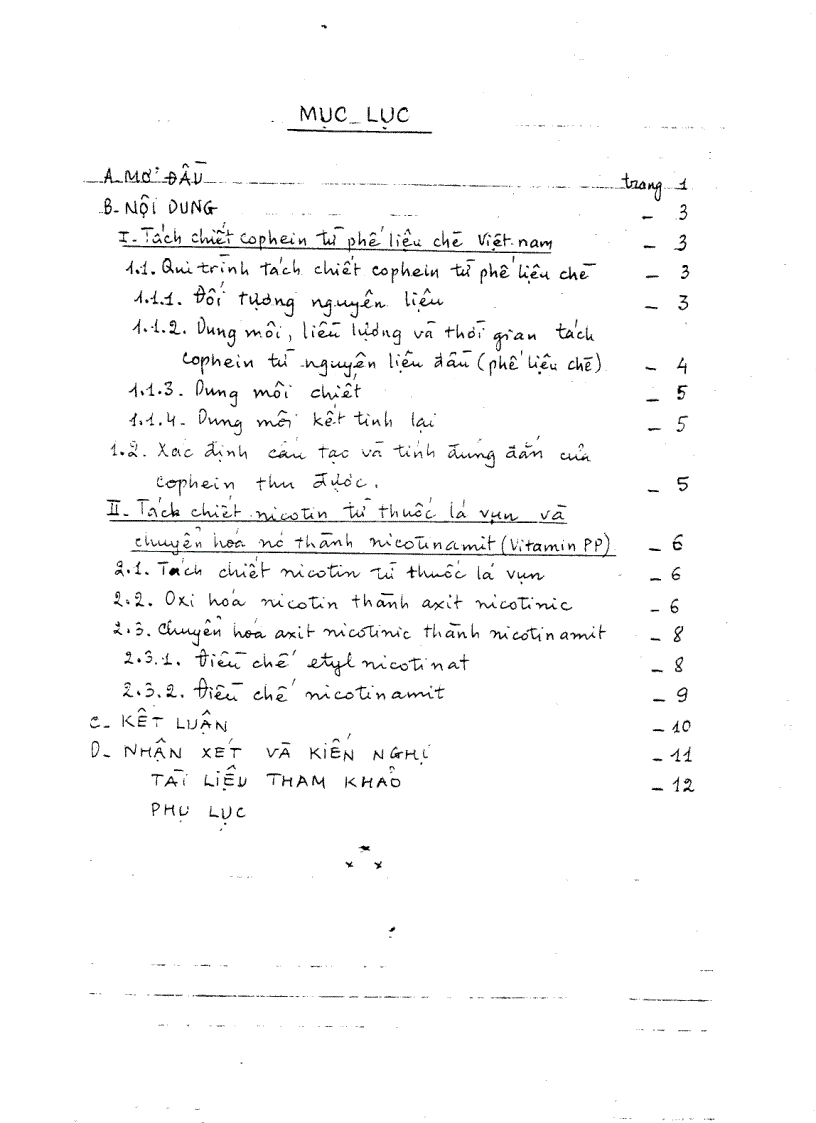 MỤC LỤC
A. MỞ ĐẦU trang 1
B. NỘI DUNG - 3
I. Tách chiết cophein từ phế liệu chè Việt nam - 3
1.1. Qui trình tách chiết cophein từ phế liệu chè - 3
1.1.1. Đối tượng nguyên liệu - 3
1.1.2. Dung môi, liều lượng và thời gian tách
cophein từ nguyên liệu đầu (phế liệu chè) - 4
1.1.3. Dung môi chiết - 5
1.1.4. Dung môi kết tinh lại - 5
1.2. Xác định cấu tạc và tính đúng đắn của
cophein thu được. - 5
II. Tách chiết nicotin từ thuốc lá vụn và
chuyển hoá nó thành nicotinamit (Vitamin PP) - 6
2.1. Tách chiết nicotin từ thuốc lá vụn - 6
2.2. Oxi hoá nicotin thành axit nicotinic - 6
2.3. Chuyển hóa axit nicotinic thành nicotinamit - 8
2.3.1. Điều chế etyl nicotinat - 8
2.3.2. Điều chế nicotinamit - 9
C. KẾT LUẬN - 10
D. NHẬN XÉT VÀ KIẾN NGHỊ - 11
TÀI LIỆU THAM KHẢO - 12
PHỤ LỤC